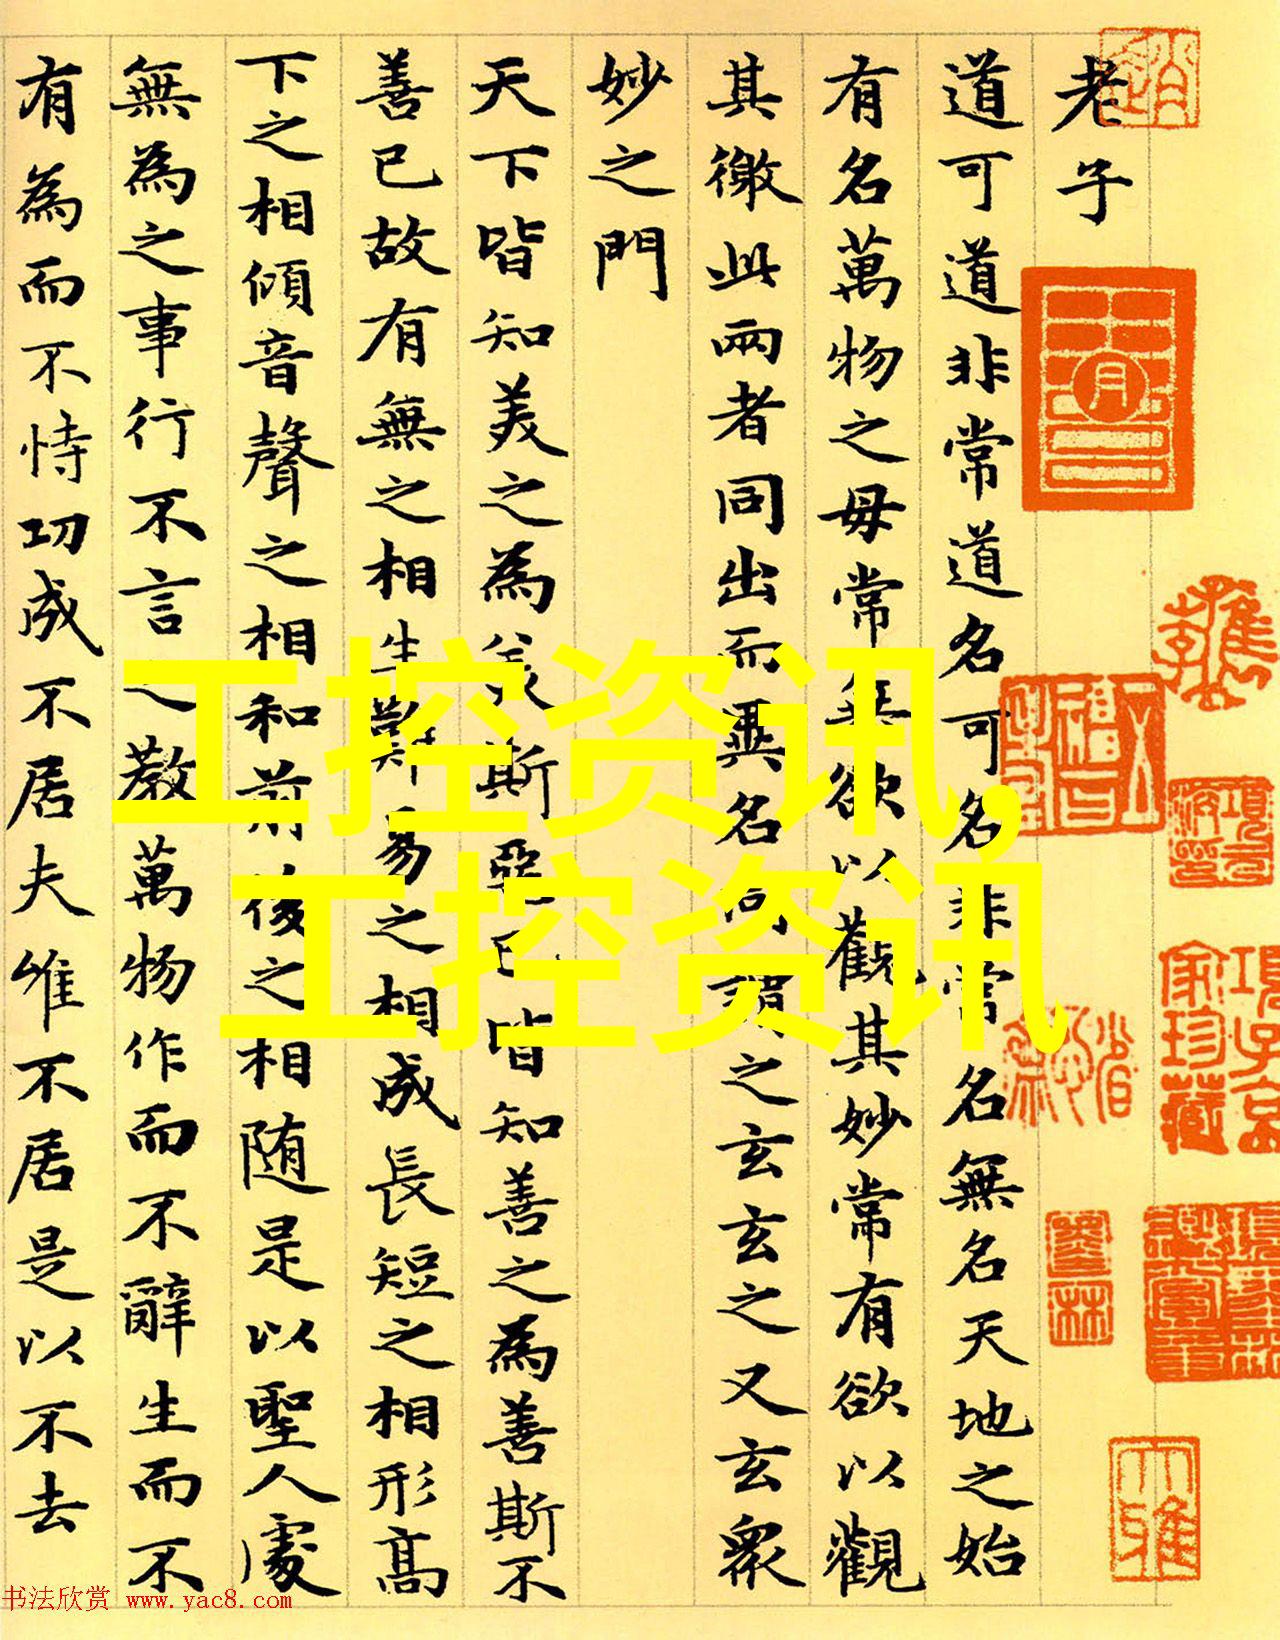 老子
道可道非常道名可名非常名無名天地之始
有名萬物之母常無欲以觀其妙常有欲以觀
其徼此兩者同出而異名同謂之玄玄之又玄衆
妙之門
天下皆知美之為美斯惡已皆知善之為善斯不
善已故有無之相生難易之相成長短之相形高
下之相傾音聲之相和前後之相随是以聖人處
無為之事行不言之教萬物作而不辭生而不
有為而不恃功成不居夫唯不居是以不去
項子京
家珍藏
工控资讯,
工控资讯
书法欣赏 www.yac8.com